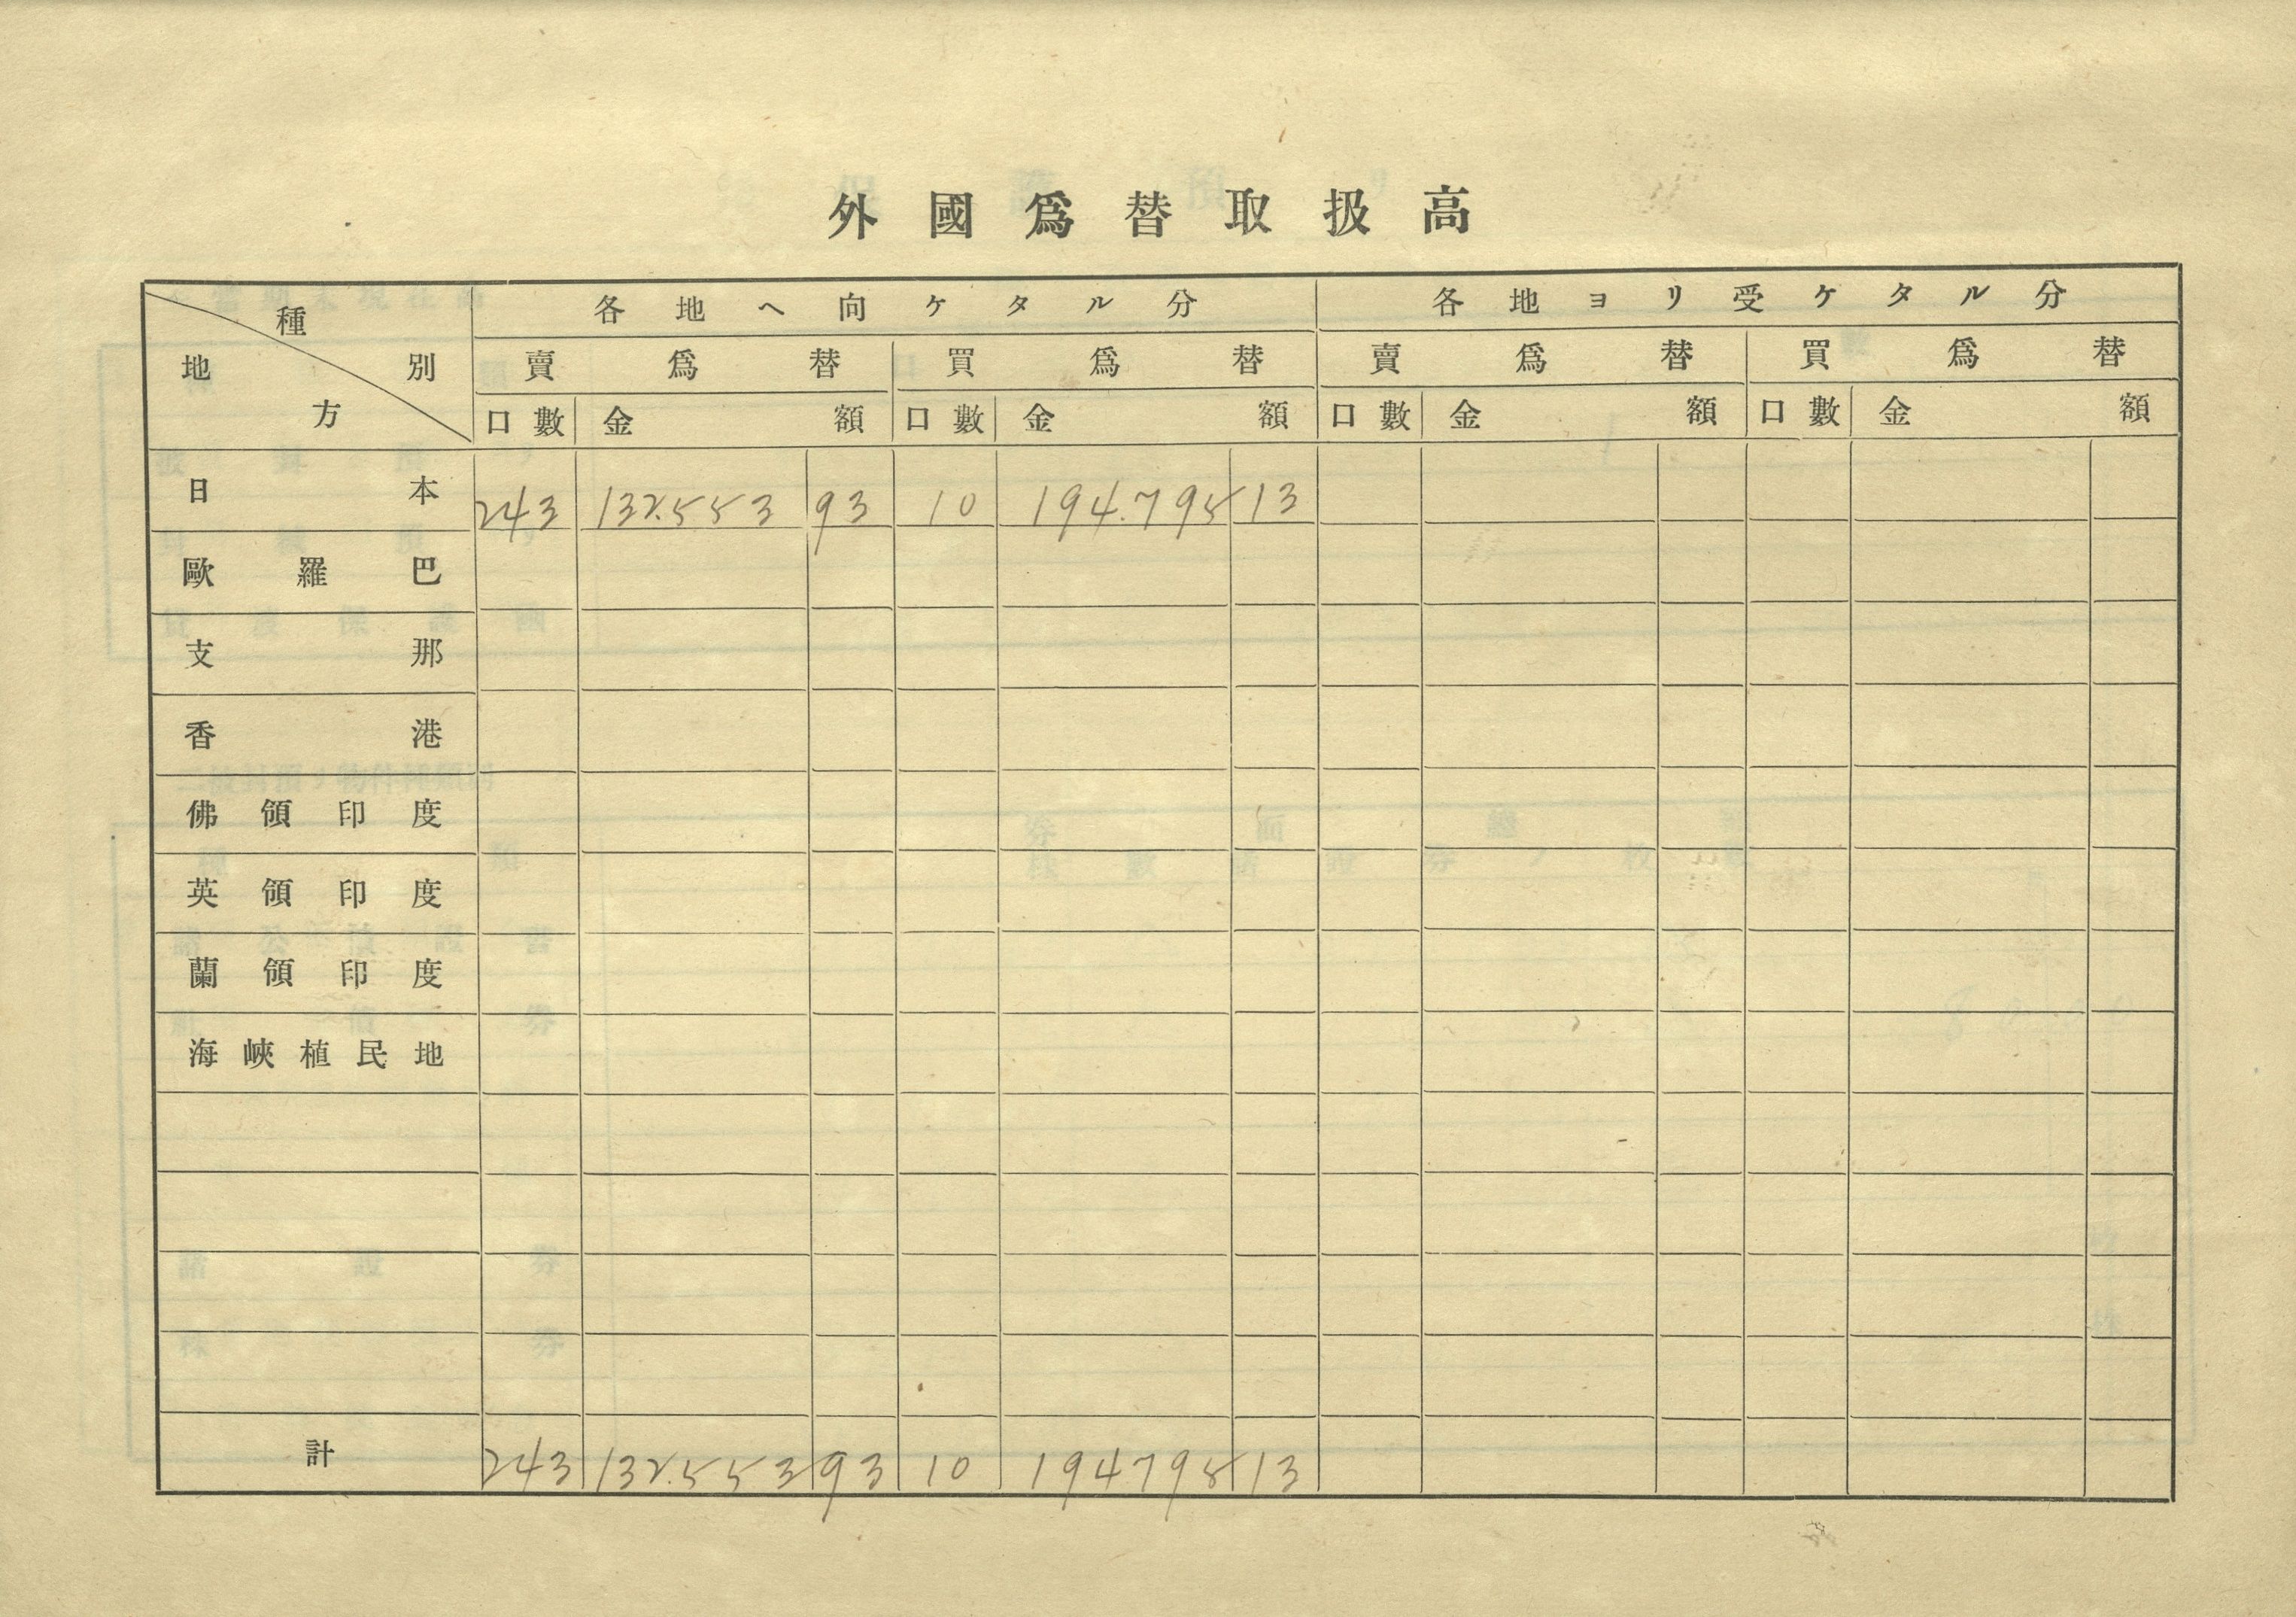 外國爲替取扱高
種別 地方 各地ヘ向ケタル分 各地ヨリ受ケタル分
賣爲替 買爲替 賣爲替 買爲替
口數 金額 口數 金額 口數 金額 口數 金額
日本 243 132.553 93 10 194.795 13
歐羅巴
支那
香港
佛領印度
英領印度
蘭領印度
海峽植民地
計 243 132.553 93 10 194.795 13